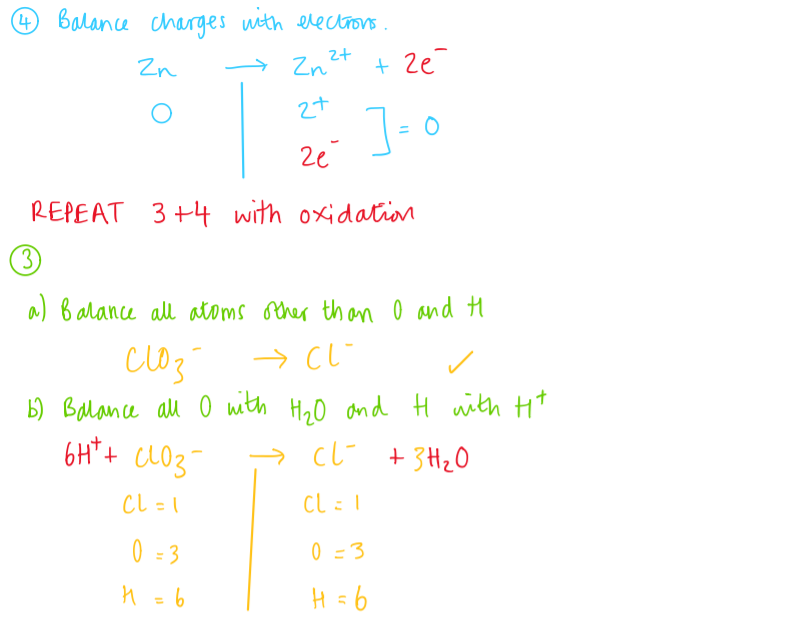 ④ Balance charges with electrons.
Zn → Zn²⁺ + 2e⁻
0 2+
2e⁻ ] = 0
REPEAT 3+4 with oxidation
③
a) Balance all atoms other than O and H
ClO₃⁻ → Cl⁻ ✓
b) Balance all O with H₂O and H with H⁺
6H⁺ + ClO₃⁻ → Cl⁻ + 3H₂O
Cl = 1 Cl = 1
O = 3 O = 3
H = 6 H = 6